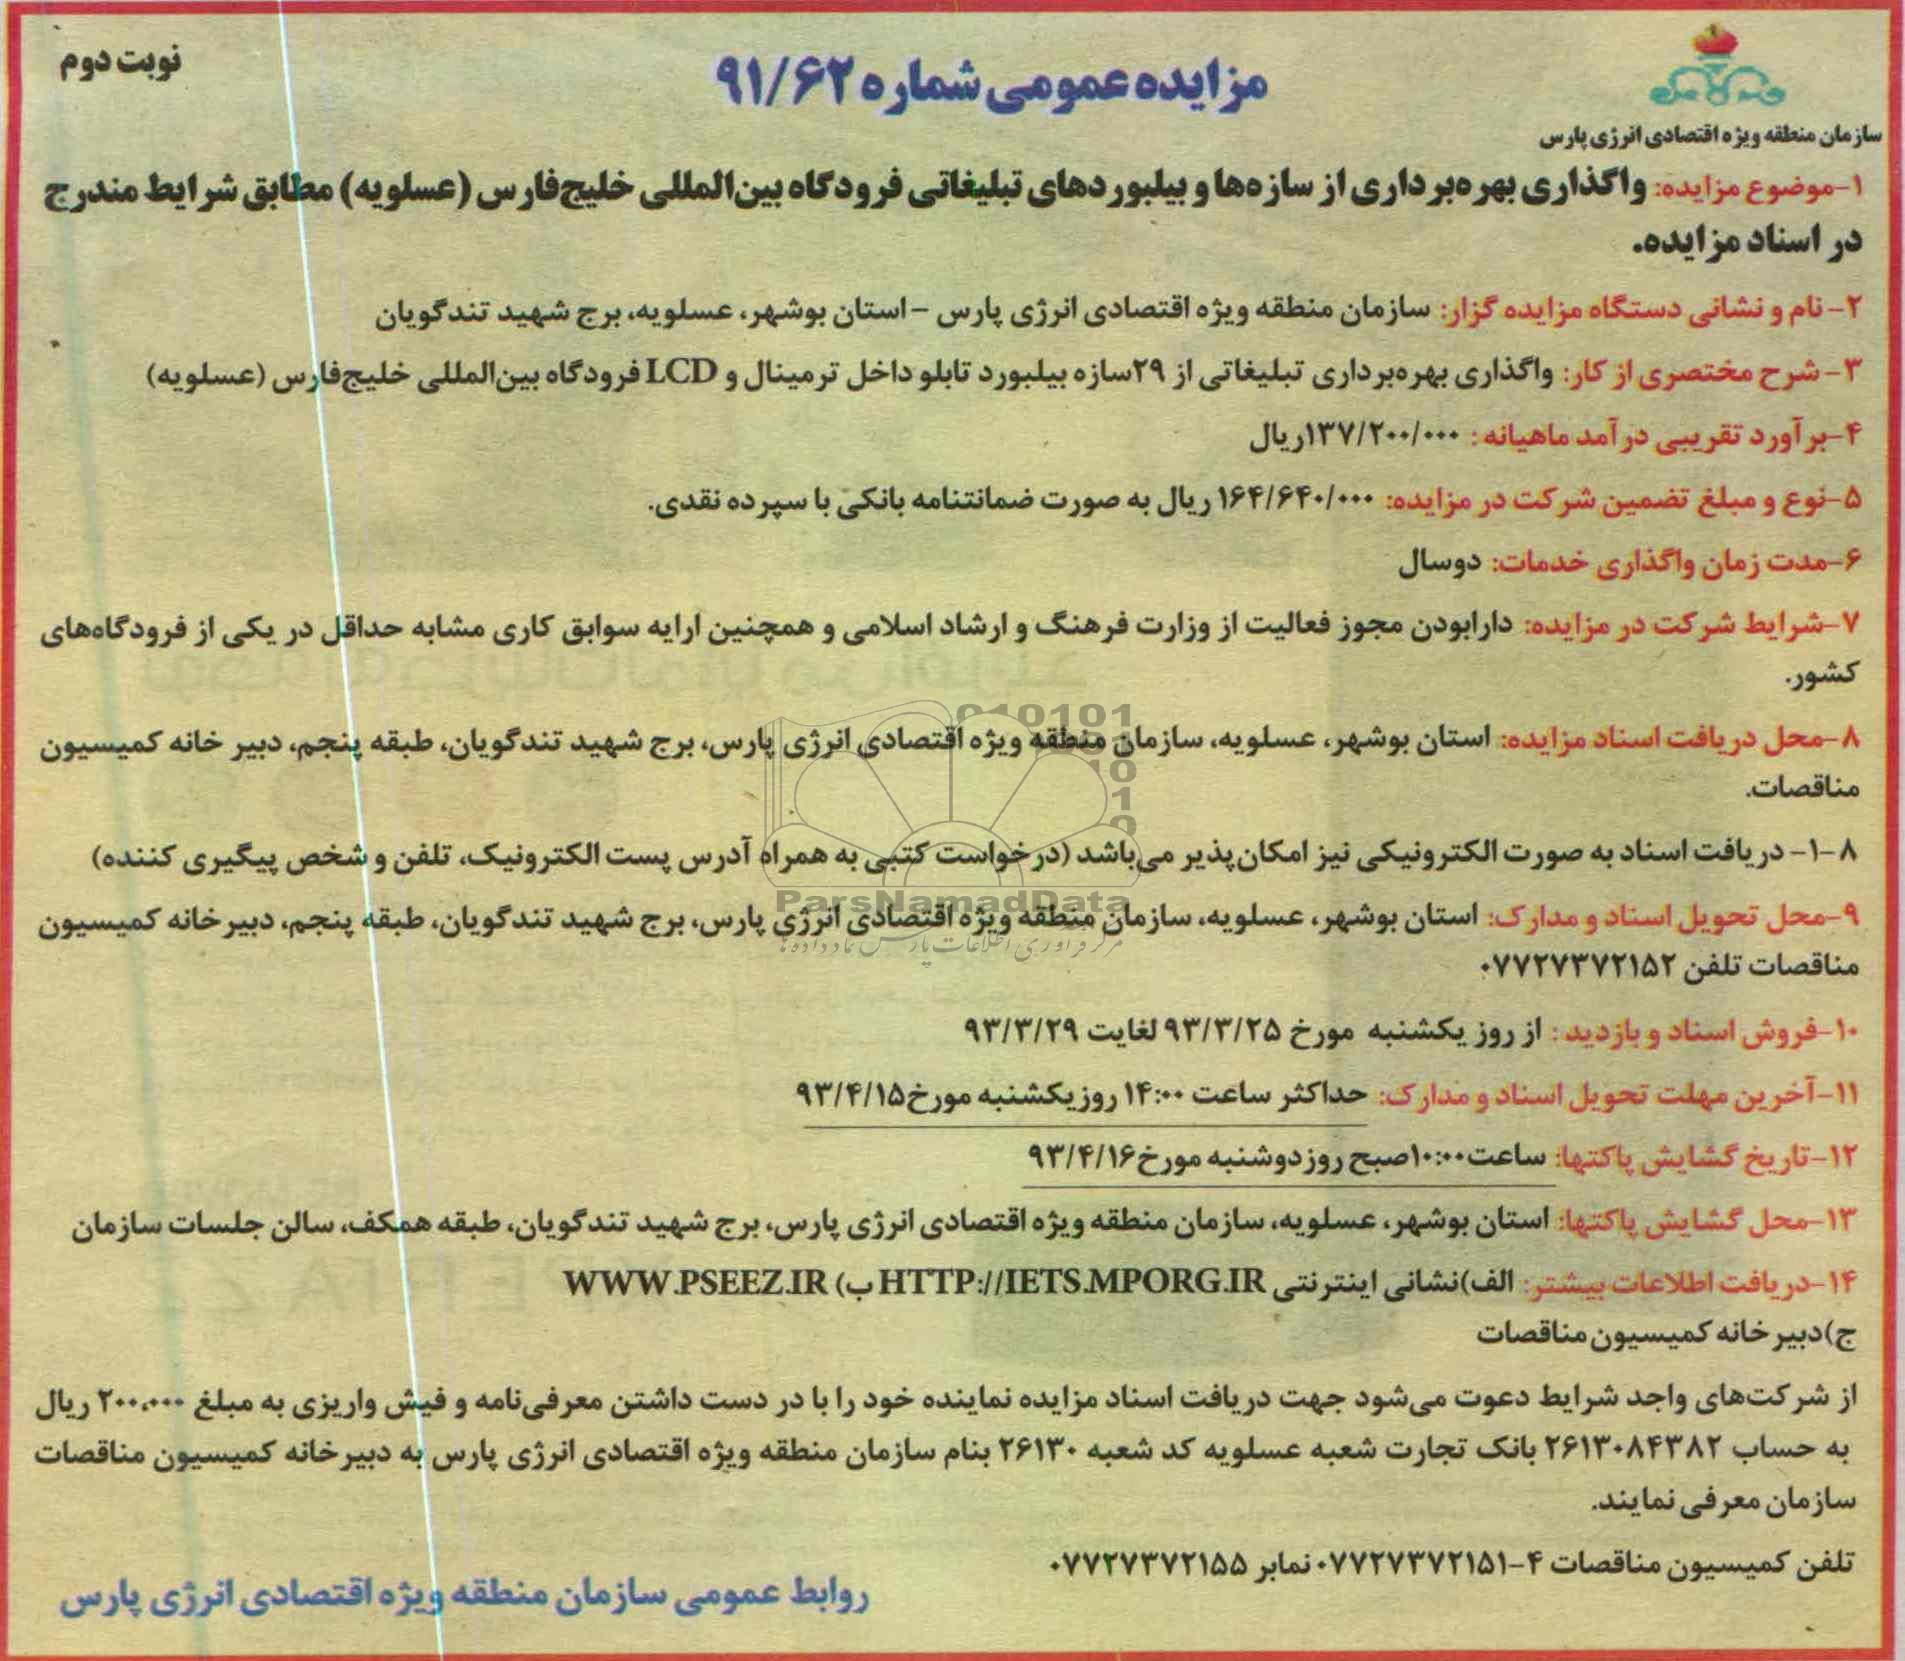 نوبت دوم
مزایده عمومی شماره ۹۱/۶۲
سازمان منطقه ویژه اقتصادی انرژی پارس
۱-موضوع مزایده: واگذاری بهره‌برداری از سازه‌ها و بیلبوردهای تبلیغاتی فرودگاه بین‌المللی خلیج‌فارس (عسلویه) مطابق شرایط مندرج
در اسناد مزایده.
۲- نام و نشانی دستگاه مزایده گزار: سازمان منطقه ویژه اقتصادی انرژی پارس - استان بوشهر، عسلویه، برج شهید تندگویان
۳- شرح مختصری از کار: واگذاری بهره‌برداری تبلیغاتی از ۲۹سازه بیلبورد تابلو داخل ترمینال و LCD فرودگاه بین‌المللی خلیج‌فارس (عسلویه)
۴-برآورد تقریبی درآمد ماهیانه : ۱۳۷/۲۰۰/۰۰۰ریال
۵-نوع و مبلغ تضمین شرکت در مزایده: ۱۶۴/۶۴۰/۰۰۰ ریال به صورت ضمانتنامه بانکی با سپرده نقدی.
۶-مدت زمان واگذاری خدمات: دوسال
۷-شرایط شرکت در مزایده: دارابودن مجوز فعالیت از وزارت فرهنگ و ارشاد اسلامی و همچنین ارایه سوابق کاری مشابه حداقل در یکی از فرودگاه‌های
کشور.
۸-محل دریافت اسناد مزایده: استان بوشهر، عسلویه، سازمان منطقه ویژه اقتصادی انرژی پارس، برج شهید تندگویان، طبقه پنجم، دبیر خانه کمیسیون
مناقصات.
۸-۱- دریافت اسناد به صورت الکترونیکی نیز امکان‌پذیر می‌باشد (درخواست کتبی به همراه آدرس پست الکترونیک، تلفن و شخص پیگیری کننده)
ParsNamadData
۹-محل تحویل اسناد و مدارک: استان بوشهر، عسلویه، سازمان منطقه ویژه اقتصادی انرژی پارس، برج شهید تندگویان، طبقه پنجم، دبیرخانه کمیسیون
مرکز فرآوری اطلاعات پارس نماد داده‌ها
مناقصات تلفن ۰۷۷۲۷۳۷۲۱۵۲
۱۰-فروش اسناد و بازدید : از روز یکشنبه مورخ ۹۳/۳/۲۵ لغایت ۹۳/۳/۲۹
۱۱-آخرین مهلت تحویل اسناد و مدارک: حداکثر ساعت ۱۴:۰۰ روز یکشنبه مورخ۹۳/۴/۱۵
۱۲-تاریخ گشایش پاکتها: ساعت۱۰:۰۰صبح روز دوشنبه مورخ۹۳/۴/۱۶
۱۳-محل گشایش پاکتها: استان بوشهر، عسلویه، سازمان منطقه ویژه اقتصادی انرژی پارس، برج شهید تندگویان، طبقه همکف، سالن جلسات سازمان
۱۴-دریافت اطلاعات بیشتر: الف)نشانی اینترنتی HTTP://IETS.MPORG.IR ب) WWW.PSEEZ.IR
ج)دبیرخانه کمیسیون مناقصات
از شرکت‌های واجد شرایط دعوت می‌شود جهت دریافت اسناد مزایده نماینده خود را با در دست داشتن معرفی‌نامه و فیش واریزی به مبلغ ۲۰۰،۰۰۰ ریال
به حساب ۲۶۱۳۰۸۴۳۸۲ بانک تجارت شعبه عسلویه کد شعبه ۲۶۱۳۰ بنام سازمان منطقه ویژه اقتصادی انرژی پارس به دبیرخانه کمیسیون مناقصات
سازمان معرفی نمایند.
تلفن کمیسیون مناقصات ۴-۰۷۷۲۷۳۷۲۱۵۱ نمابر ۰۷۷۲۷۳۷۲۱۵۵
روابط عمومی سازمان منطقه ویژه اقتصادی انرژی پارس